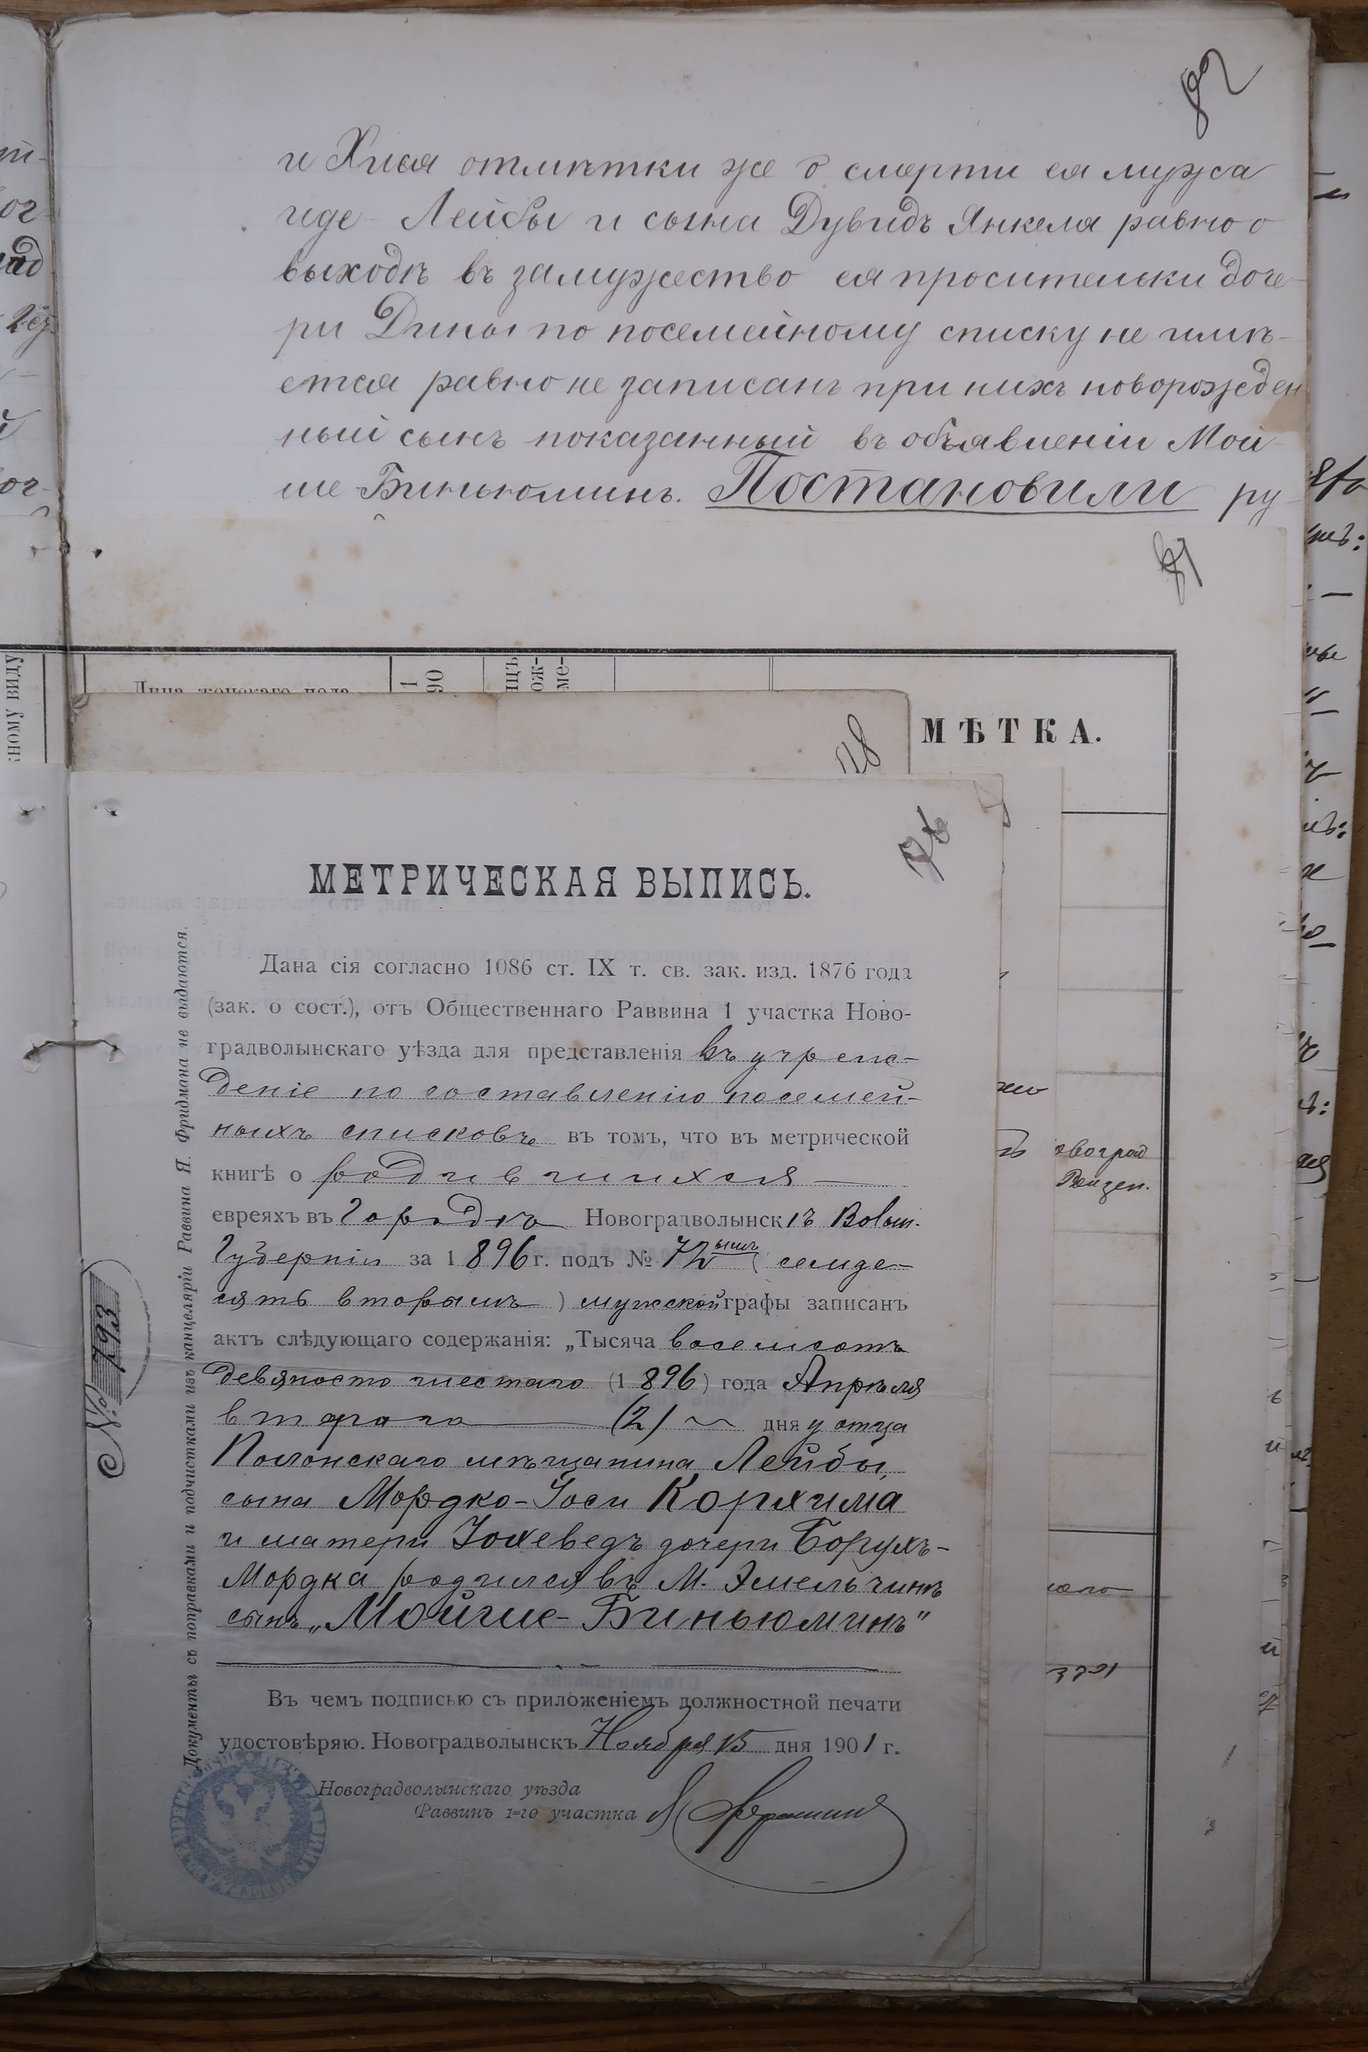 82
и Хися отмѣтки же о смерти ея мужа
иде-Лейбы и сына Дувидъ Янкеля равно о
выходѣ въ замужество ея просительки доче-
ри Дины по посемейному списку не имѣ-
ется равно не записанъ при нихъ новорожден
ный сынъ показанный въ объявленіи Мой-
ше-Биньюминъ. Постановили ру-
Лица женскаго пола
МѢТКА.
118
МЕТРИЧЕСКАЯ ВЫПИСЬ.
Дана сія согласно 1086 ст. IX т. св. зак. изд. 1876 года
(зак. о сост.), отъ Общественнаго Раввина 1 участка Ново-
градволынскаго уѣзда для представленія въ учреж-
деніе по составленію посемей-
ныхъ списковъ въ томъ, что въ метрической
книгѣ о родившихся
евреяхъ въ Городѣ Новоградволынскѣ Волын.
Губерніи за 1896 г. подъ № 72ымъ (семиде-
сять вторымъ) мужской графы записанъ
актъ слѣдующаго содержанія: „Тысяча восемсотъ
девяносто шестаго (1896) года Апрѣля
втораго (2) дня у отца
Полонскаго мѣщанина Лейбы,
сына Мордко-Іоси Корхима
и матери Іохеведъ дочери Борухъ-
Мордка родился въ М. Эмельчинѣ
сынъ „Мойше-Биньюминъ"
Въ чемъ подписью съ приложеніемъ должностной печати
удостовѣряю. Новоградволынскъ Ноября 15 дня 1901 г.
Новоградволынскаго уѣзда
Раввинъ 1-го участка Я Фридманъ
Документы съ поправками и подчистками изъ канцеляріи Раввина Я. Фридмана не выдаются.
№ 793